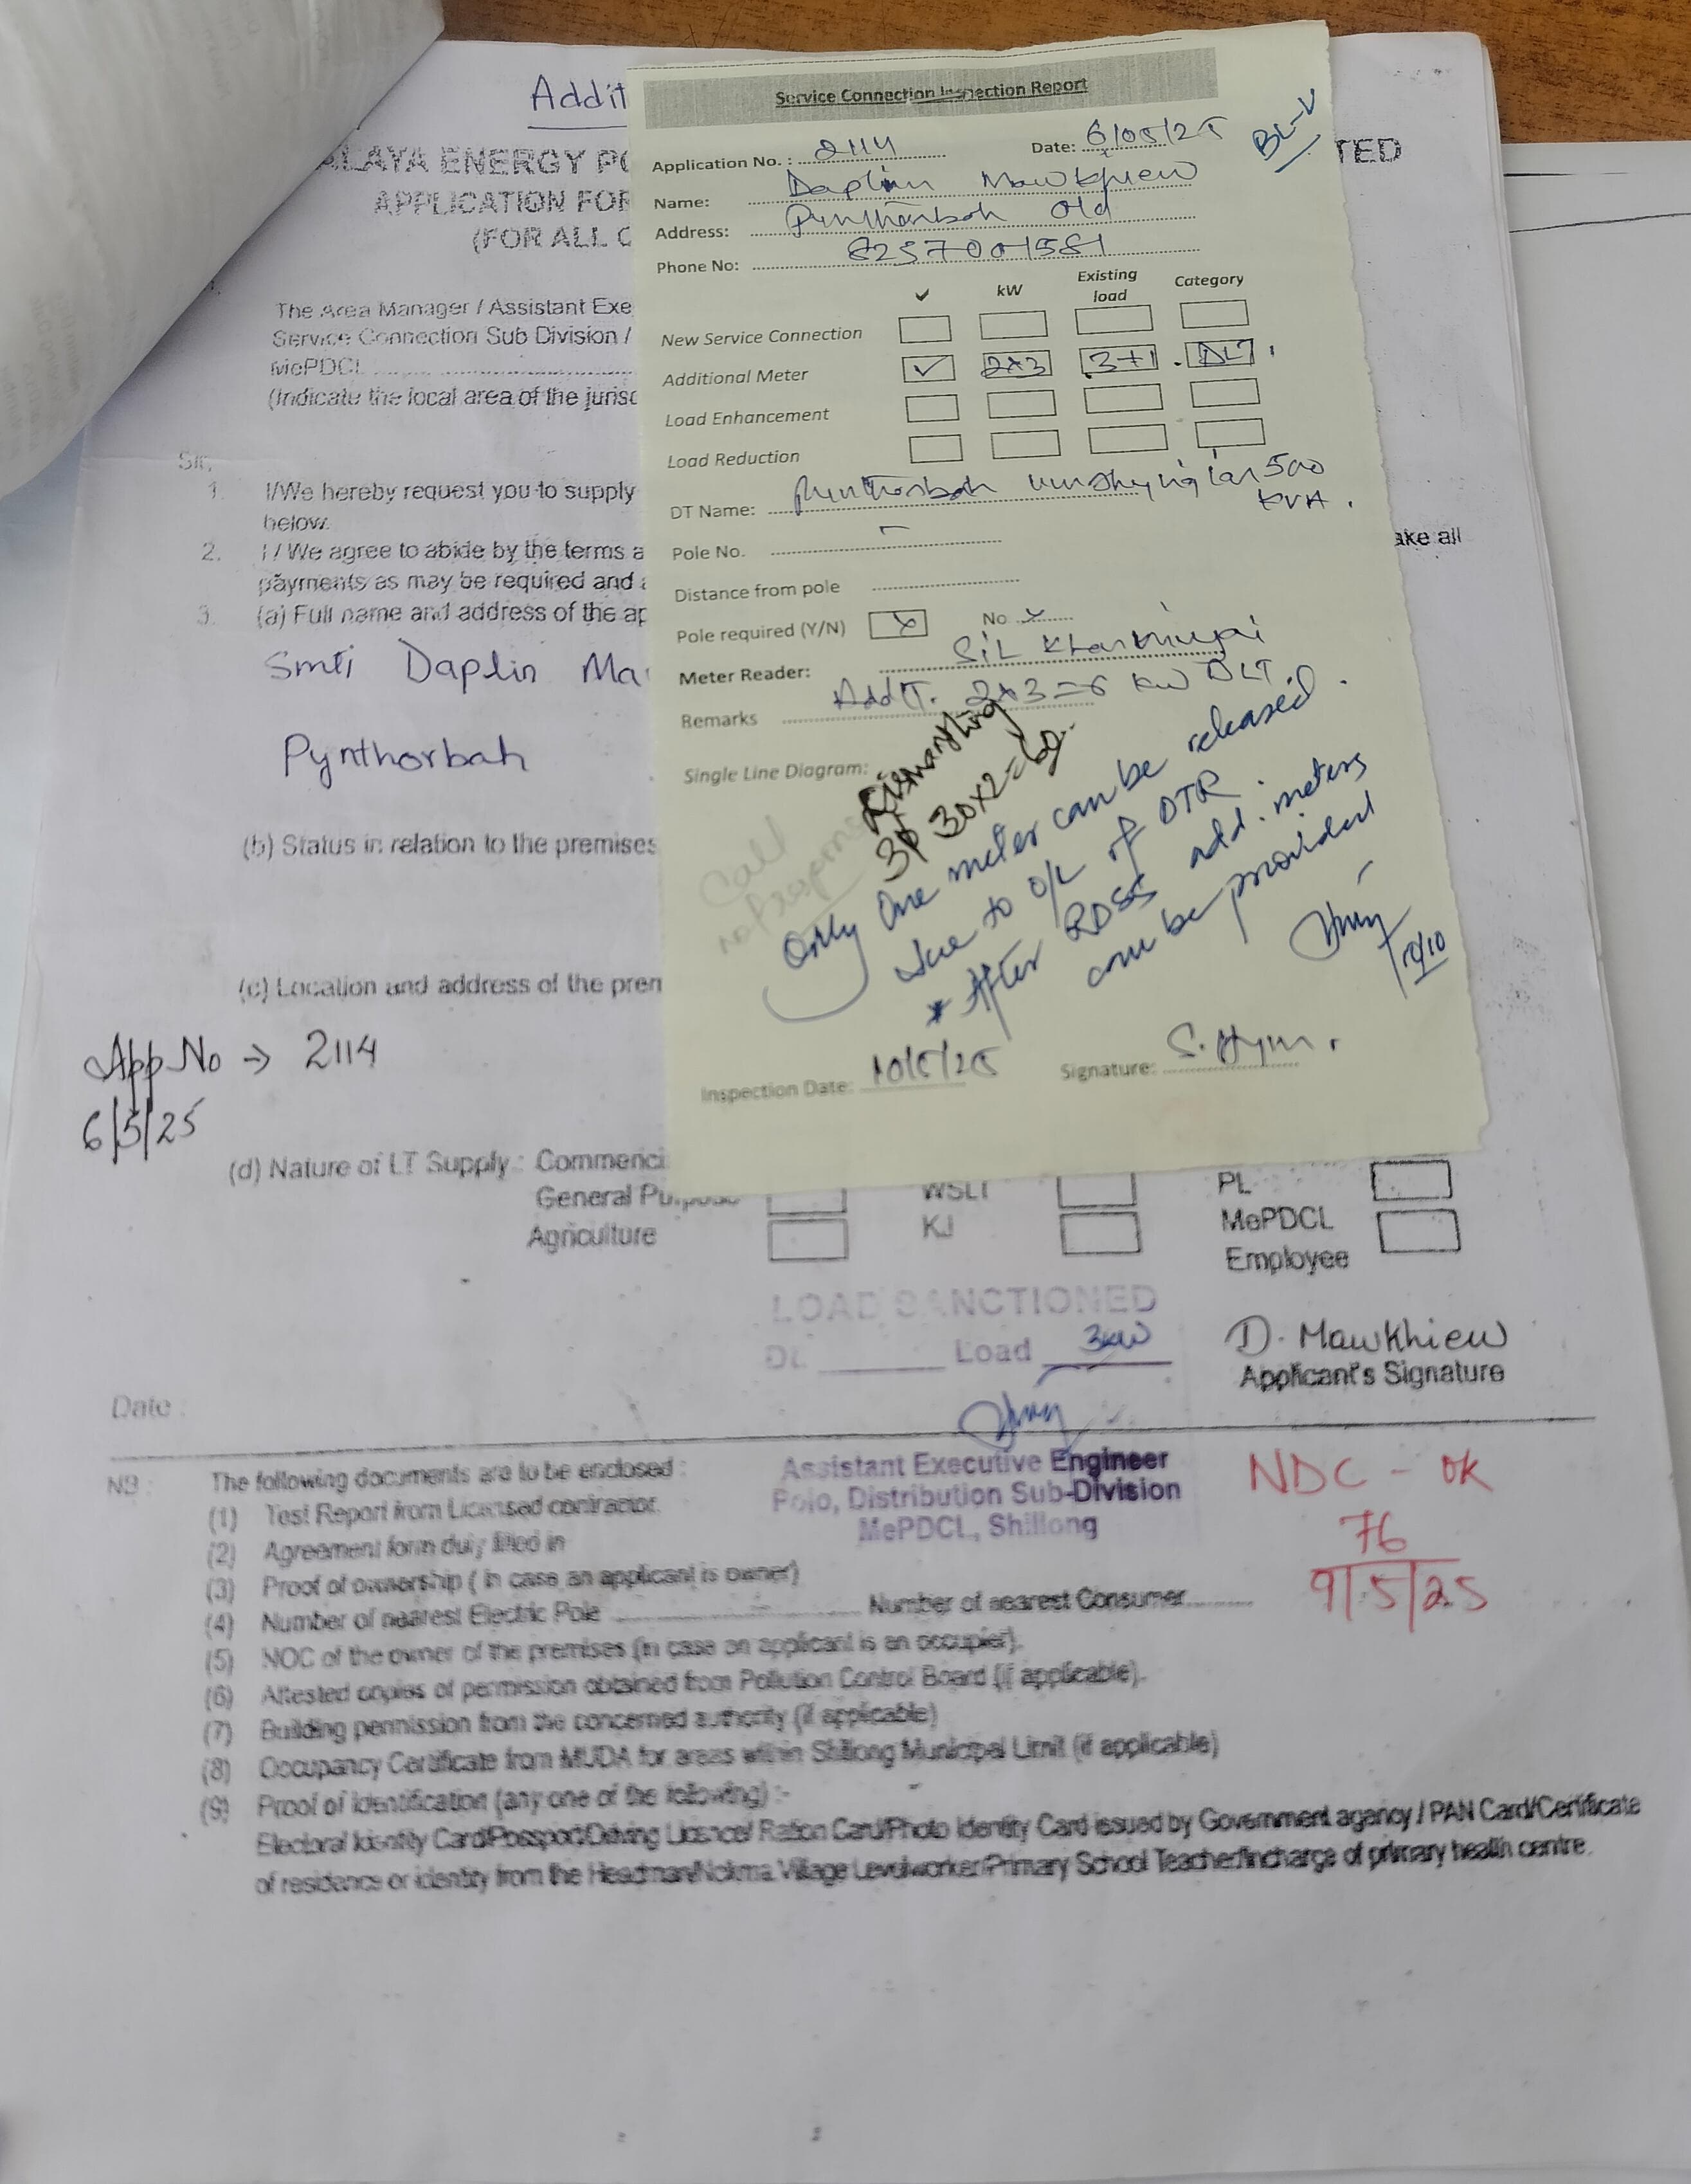 Addit
ALAYA ENERGY PO
TED
APPLICATION FOR
(FOR ALL C
The Area Manager / Assistant Exe
Service Connection Sub Division /
MePDCL
(Indicate the local area of the jurisd
Sir,
1. I/We hereby request you to supply
below.
2. I / We agree to abide by the terms a
ake all
payments as may be required and a
3. (a) Full name and address of the ap
Smti Daplin Ma
Pynthorbah
(b) Status in relation to the premises
(c) Location and address of the prem
App No → 2114
6/5/25
(d) Nature of LT Supply : Commerci
General Purpose WSLT PL
Agriculture KJ MePDCL
Employee
LOAD SANCTIONED
DL Load 3kW
D. Mawkhiew
Applicant's Signature
Date :
Assistant Executive Engineer
Polo, Distribution Sub-Division
MePDCL, Shillong
NDC - OK
76
9/5/25
NB : The following documents are to be enclosed :
(1) Test Report from Licensed contractor.
(2) Agreement form duly filled in
(3) Proof of ownership ( in case an applicant is owner)
(4) Number of nearest Electric Pole Number of nearest Consumer
(5) NOC of the owner of the premises (in case on applicant is an occupier).
(6) Attested copies of permission obtained from Pollution Control Board (if applicable).
(7) Building permission from the concerned authority (if applicable)
(8) Occupancy Certificate from MUDA for areas within Shillong Municipal Limit (if applicable)
(9) Proof of identification (any one of the following) :-
Electoral Identity Card/Passport/Driving Licence/ Ration Card/Photo Identity Card issued by Government agency / PAN Card/Certificate
of residence or identity from the Headman/Nokma Village Levelworker/Primary School Teacher/Incharge of primary health centre.
Service Connection Inspection Report
BL-V
Application No. : 2114 Date: 6/05/25
Name: Daplin Mawkhiew
Address: Pynthorbah Old
Phone No: 8257001581
✓ kW Existing load Category
New Service Connection
Additional Meter ✓ 2×3 3+1 DLT
Load Enhancement
Load Reduction
DT Name: Pynthorbah 500
KVA.
Pole No. -
Distance from pole
Pole required (Y/N) × No ×
Meter Reader: SiL
Remarks Addt. 2×3=6 kW DLT.
Single Line Diagram:
Dismantling
3φ 30×2=60
Call
Only One meter can be released
due to O/L of DTR
* After RDSS add. meters
can be provided
Inspection Date: 10/5/25 Signature: S.